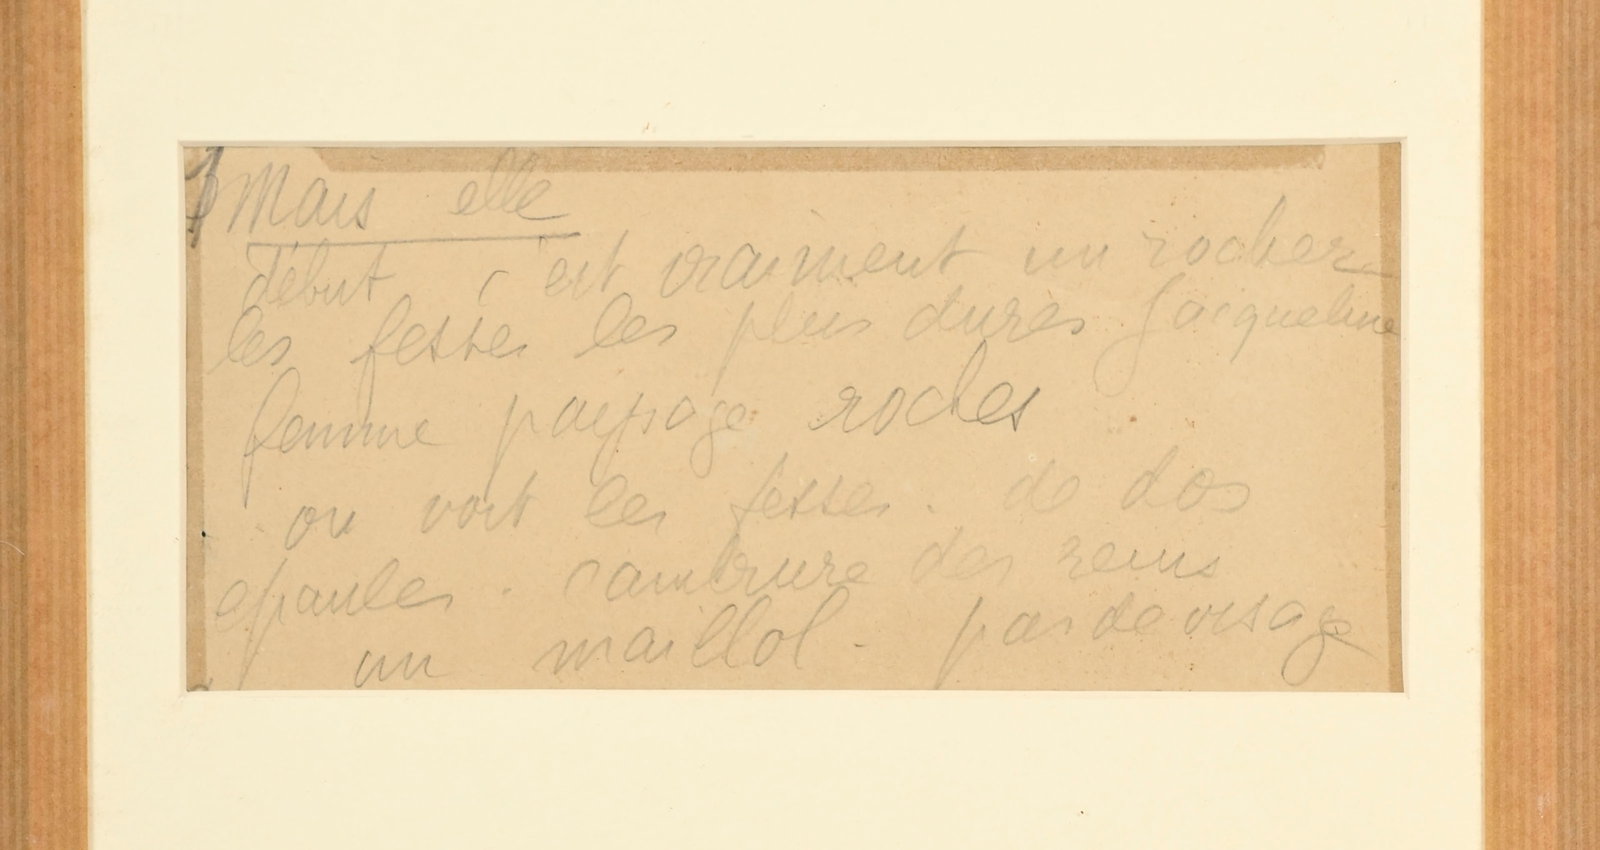 Mais elle
début c'est vraiment un rocher
les fesses les plus dures Jacqueline
femme paysage roches
on voit les fesses. de dos
epaules. cambrure des reins
un maillol. pas de visage